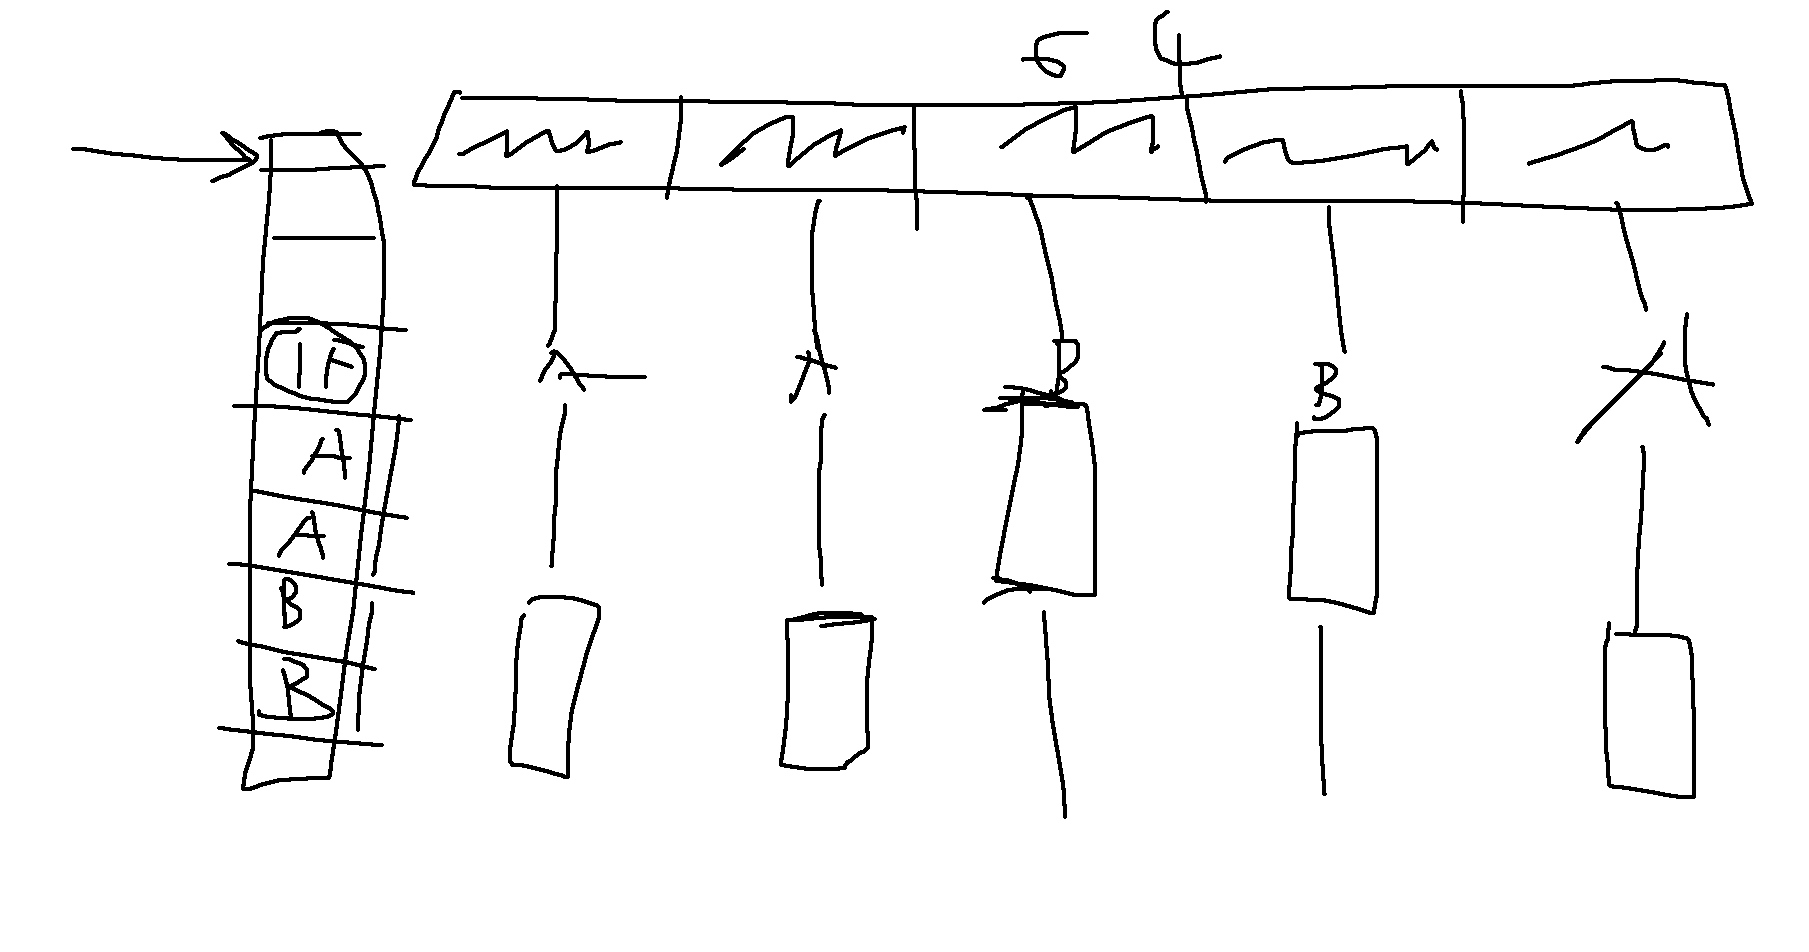 64
IF
A
A
B
B
A A B B A